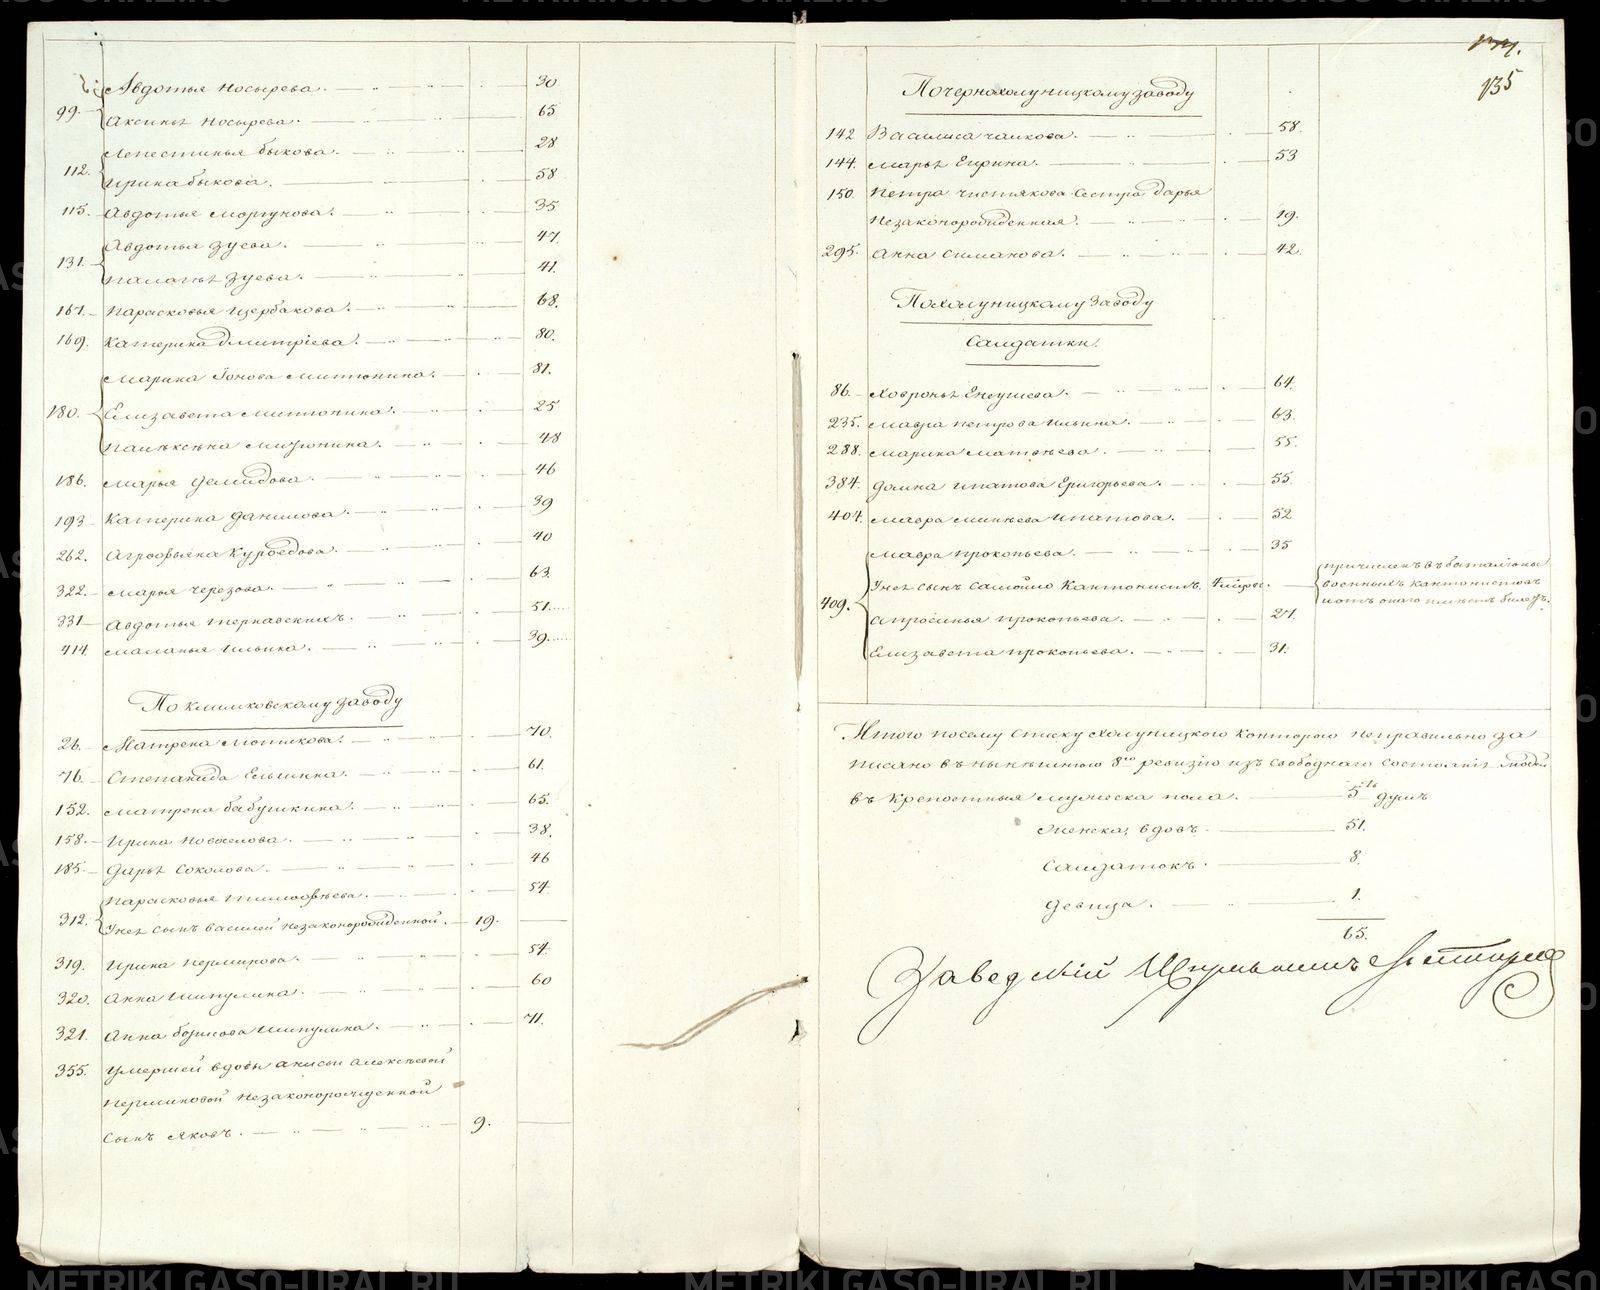 Авдотья Носырева. 30
99. Аксинья Носырева. 65
Лепестинья Быкова. 28
112. Ирина Быкова. 58
115. Авдотья Моргунова. 35
Авдотья Зуева. 47.
131. Палагѣя Зуева. 41.
167. Парасковья Щербакова. 68.
169. Катерина Дмитріева. 80.
Марина Іонова Митюнина. 81.
180. Елизавета Митюнина. 25
Палѣксѣна Митюнина. 48
186. Марья Демидова. 46
193. Катерина Данилова. 39
262. Агрофѣена Куроедова. 40
322. Марья Черезова. 63.
331 Авдотья Тернавскихъ. 51.
414. Маланья Ильина. 39.
По Климковскому заводу
26. Матрена Мотикова. 70.
76. Степанида Ельшина. 61.
152. Матрена Бабушкина. 65.
158. Ирина Новоселова. 38.
185. Дарья Соколова. 46
Парасковья Тимофѣева. 54
312. У нея сынъ Василей незаконорожденной. 19.
319. Ирина Перминова. 54.
320. Анна Шипулина. 60
321. Анна Борисова Шипулина. 71.
355. Умершей вдовы Анисьи Алексѣевой
Перминовой незаконорожденной
сынъ Яковъ. 9.
135
По чернохолуницкому заводу
142 Василиса Чаикова. 58.
144. Марья 53
150. Петра Чистякова сестра Дарья
незаконорожденная. 19.
295. Анна Симанова. 42.
По холуницкому заводу
Салдатки.
86. Ховронья 64.
235. Мавра Петрова Ильина. 63.
288. Марина Матвѣева. 55.
384. Домна Ипатова Григорьева. 55.
404. Мавра Минѣева Ипатова. 52
Мавра Прокопьева. 35
409. У нея сынъ Самойло кантонистъ. причисленъ въ баталіоны
военныхъ кантонистовъ
и отъ онаго имѣетъ билетъ.
Апросинья Прокопьева. 27.
Елизавета Прокопьева. 31.
Итого по сему списку Холуницкою конторою неправильно за
писано въ нынѣшнюю 8ю ревизію изъ свободнаго состоянія людей
въ крепостныя мужеска пола. 5ть душъ
женска, вдовъ. 51.
салдатокъ. 8.
девица. 1.
65.
METRIKI.GASO-URAL.RU